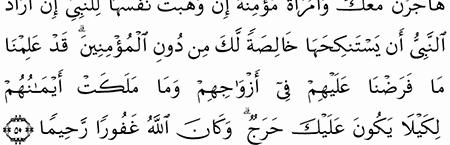 هَاجَرْنَ مَعَكَ وَٱمْرَأَةً مُّؤْمِنَةً إِن وَهَبَتْ نَفْسَهَا لِلنَّبِىِّ إِنْ أَرَادَ
ٱلنَّبِىُّ أَن يَسْتَنكِحَهَا خَالِصَةً لَّكَ مِن دُونِ ٱلْمُؤْمِنِينَ ۗ قَدْ عَلِمْنَا
مَا فَرَضْنَا عَلَيْهِمْ فِىٓ أَزْوَٰجِهِمْ وَمَا مَلَكَتْ أَيْمَٰنُهُمْ
لِكَيْلَا يَكُونَ عَلَيْكَ حَرَجٌ ۗ وَكَانَ ٱللَّهُ غَفُورًا رَّحِيمًا ﴿٥٠﴾